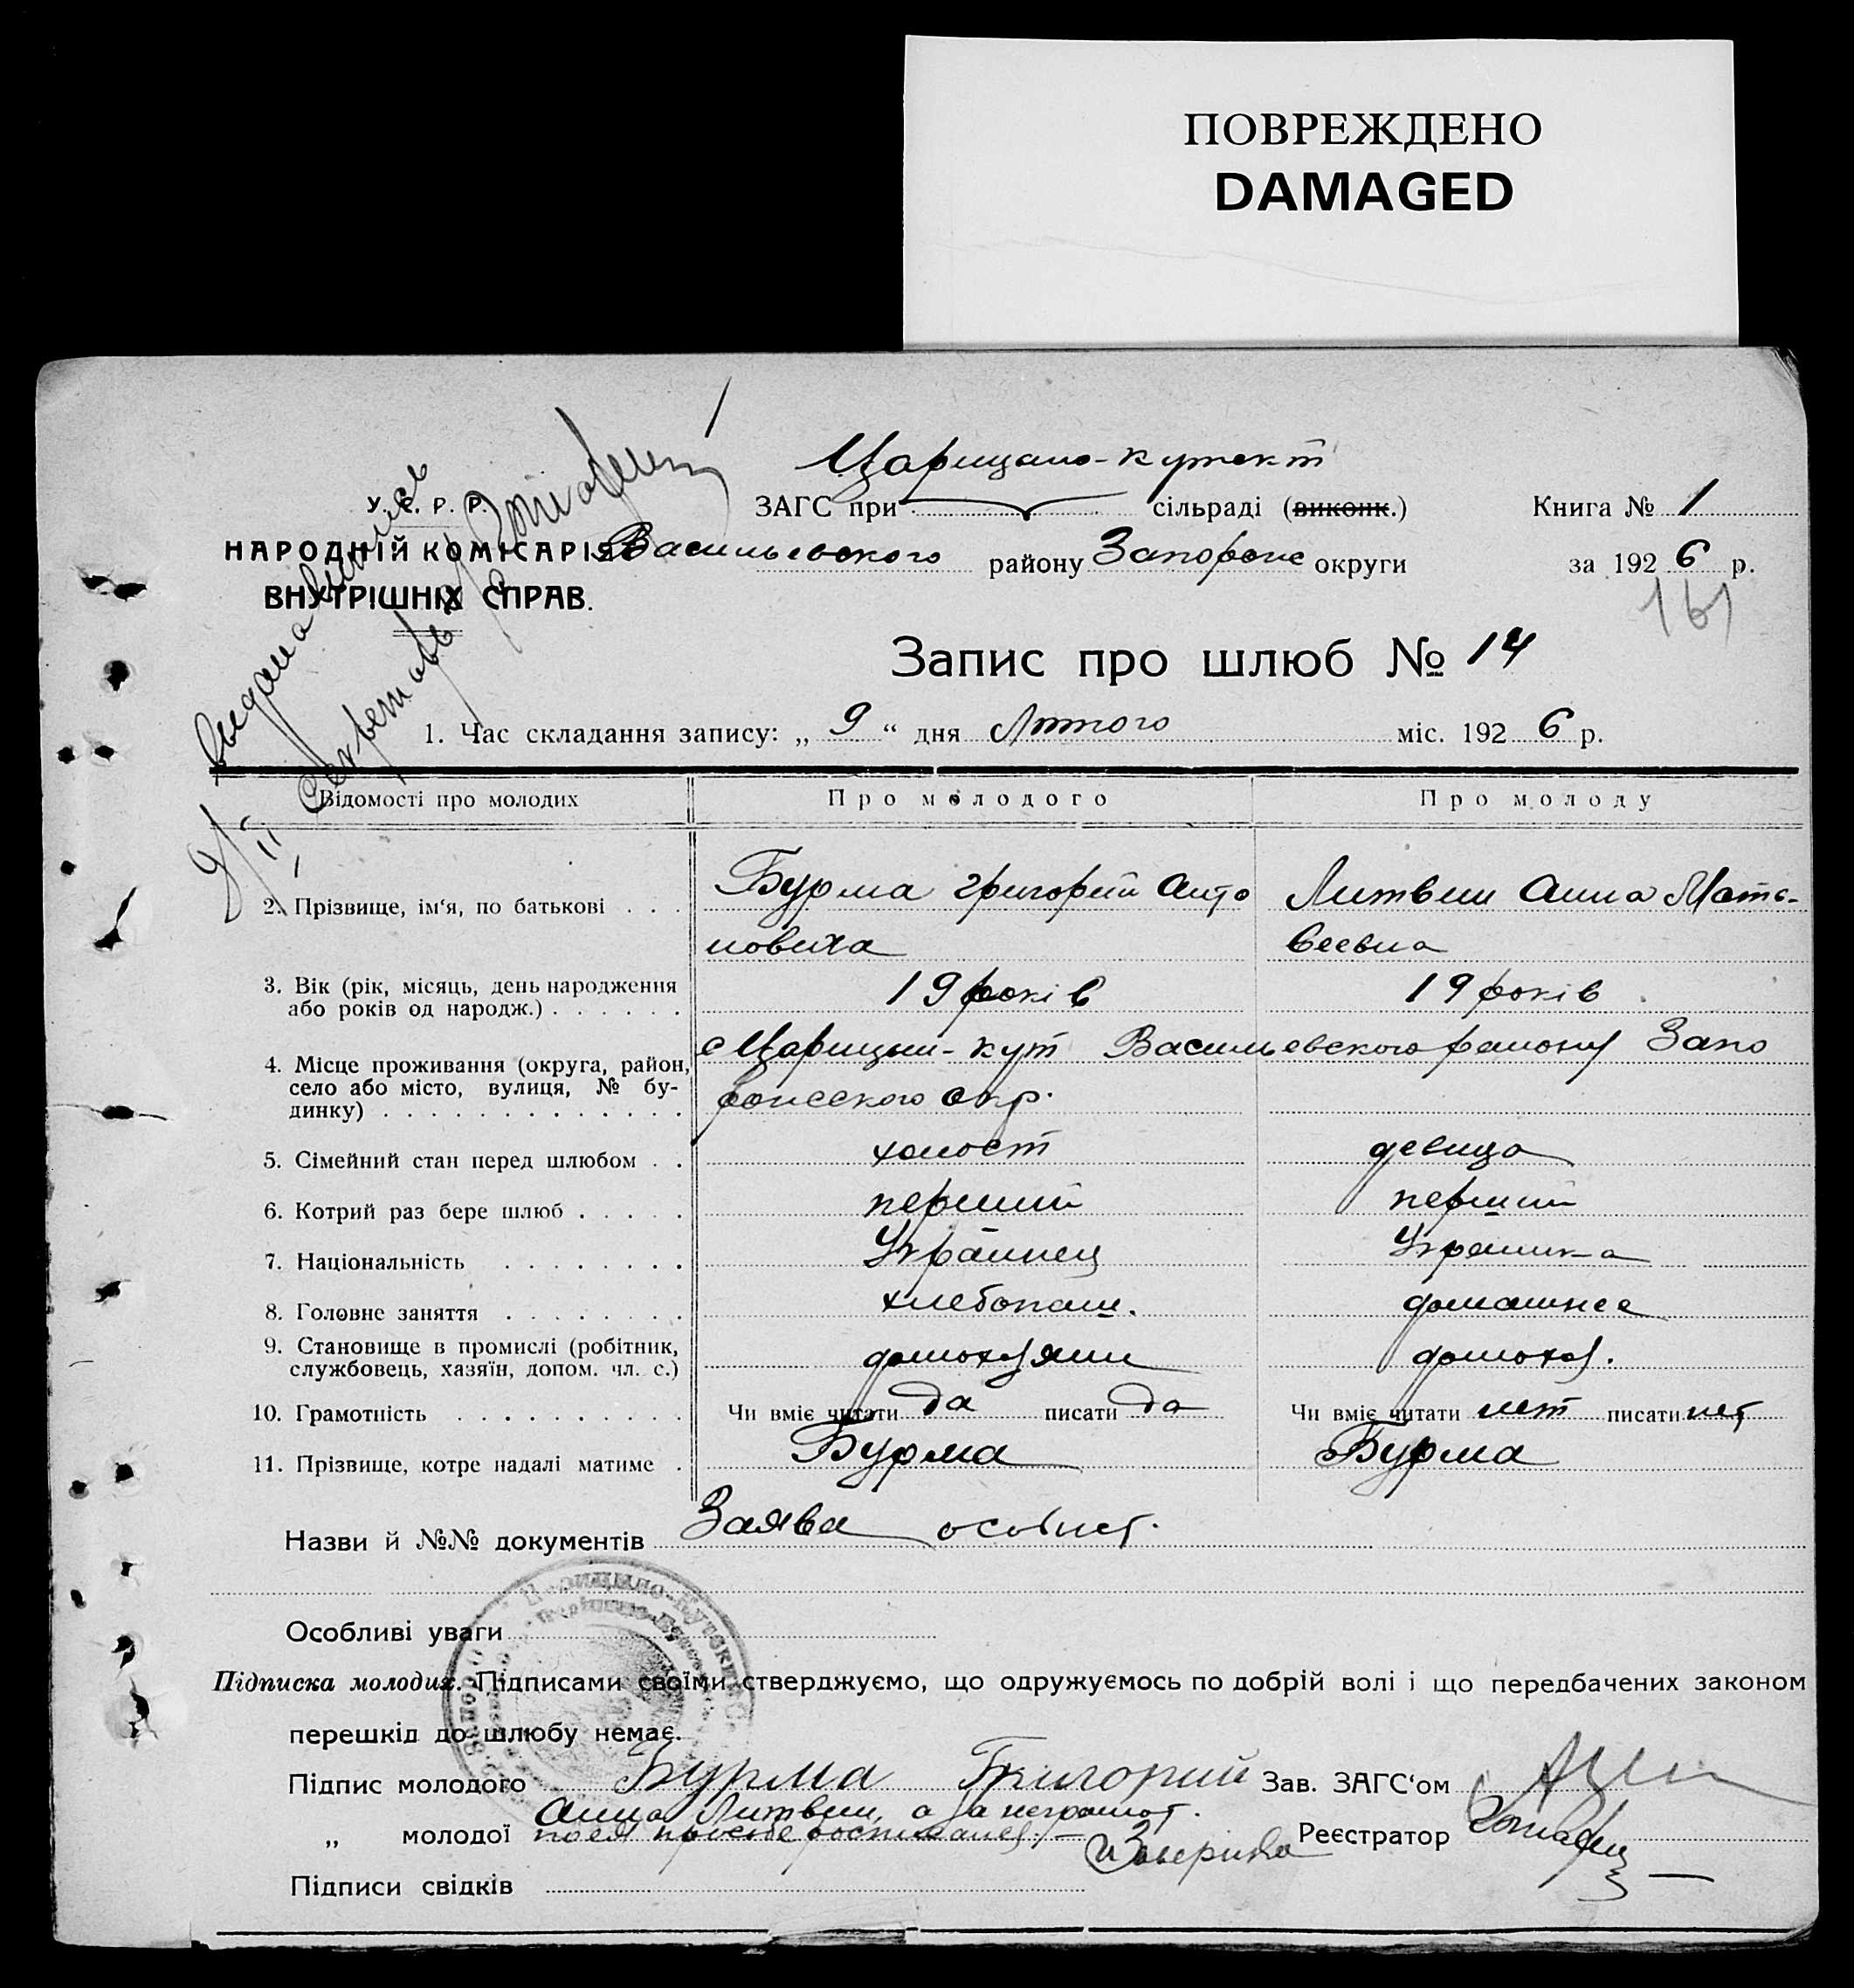 ПОВРЕЖДЕНО
DAMAGED
Царицано-кутскт
У. С. Р. Р.
ЗАГС при сільраді (виконк.) Книга № 1
НАРОДНІЙ КОМІСАРІЯТ Васильевского району Запорож округи за 1926 р.
ВНУТРІШНІХ СПРАВ.
161
Запис про шлюб № 14
1. Час складання запису: „ 9 “ дня Лютого міс. 1926 р.
Відомості про молодих Про молодого Про молоду
2. Прізвище, ім‘я, по батькові . . . Бурма Григорий Анто Литвин Анна Мат-
новича веевна
3. Вік (рік, місяць, день народження 19 років 19 років
або років од народж.) . . . . . .
с Царицын-кут Васильевского району Запо
4. Місце проживання (округа, район,
село або місто, вулиця, № бу- рожсского окр.
динку) . . . . . . . . . . . . .
5. Сімейний стан перед шлюбом . . холост девица
6. Котрий раз бере шлюб . . . . . перший перший
7. Національність . . . . . . . . Украинец Украинка
8. Головне заняття . . . . . . . . хлебопаш. домашнее
9. Становище в промислі (робітник, домохозяин домохоз.
службовець, хазяїн, допом. чл. с.)
10. Грамотність . . . . . . . . . . Чи вміє читати да писати да Чи вміє читати нет писати нет
11. Прізвище, котре надалі матиме . Бурма Бурма
Назви й №№ документів Заява особист.
Особливі уваги
Підписка молодих. Підписами своїми стверджуємо, що одружуємось по добрій волі і що передбачених законом
перешкід до шлюбу немає.
Підпис молодого Бурма Григорий Зав. ЗАГС‘ом
Анна Литвин, а за неграмот.
„ молодої по ея просьбе росписался Реєстратор
Підписи свідків